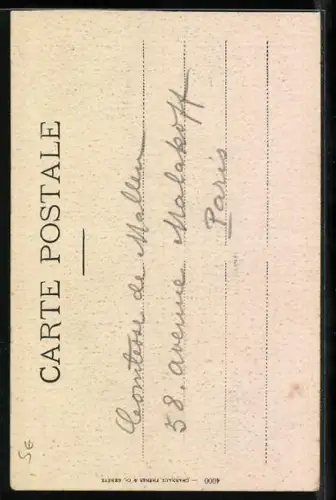 CARTE POSTALE
Comtesse de Mallen
58. avenue Malakoff
Paris
4000 — CHARNAUX FRÈRES & Co, GENÈVE
56